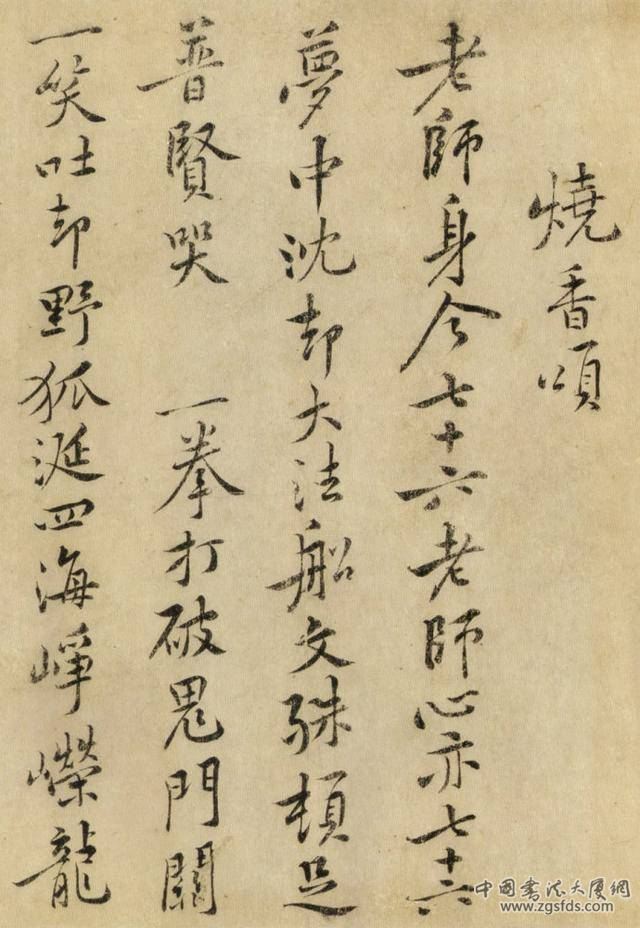 燒香頌
老師身今七十六老師心亦七十六
夢中沈却大法船文殊頓足
普賢哭 一拳打破鬼門關
一笑吐却野狐涎四海崢嶸龍
中国书法大厦網
www.zgsfds.com